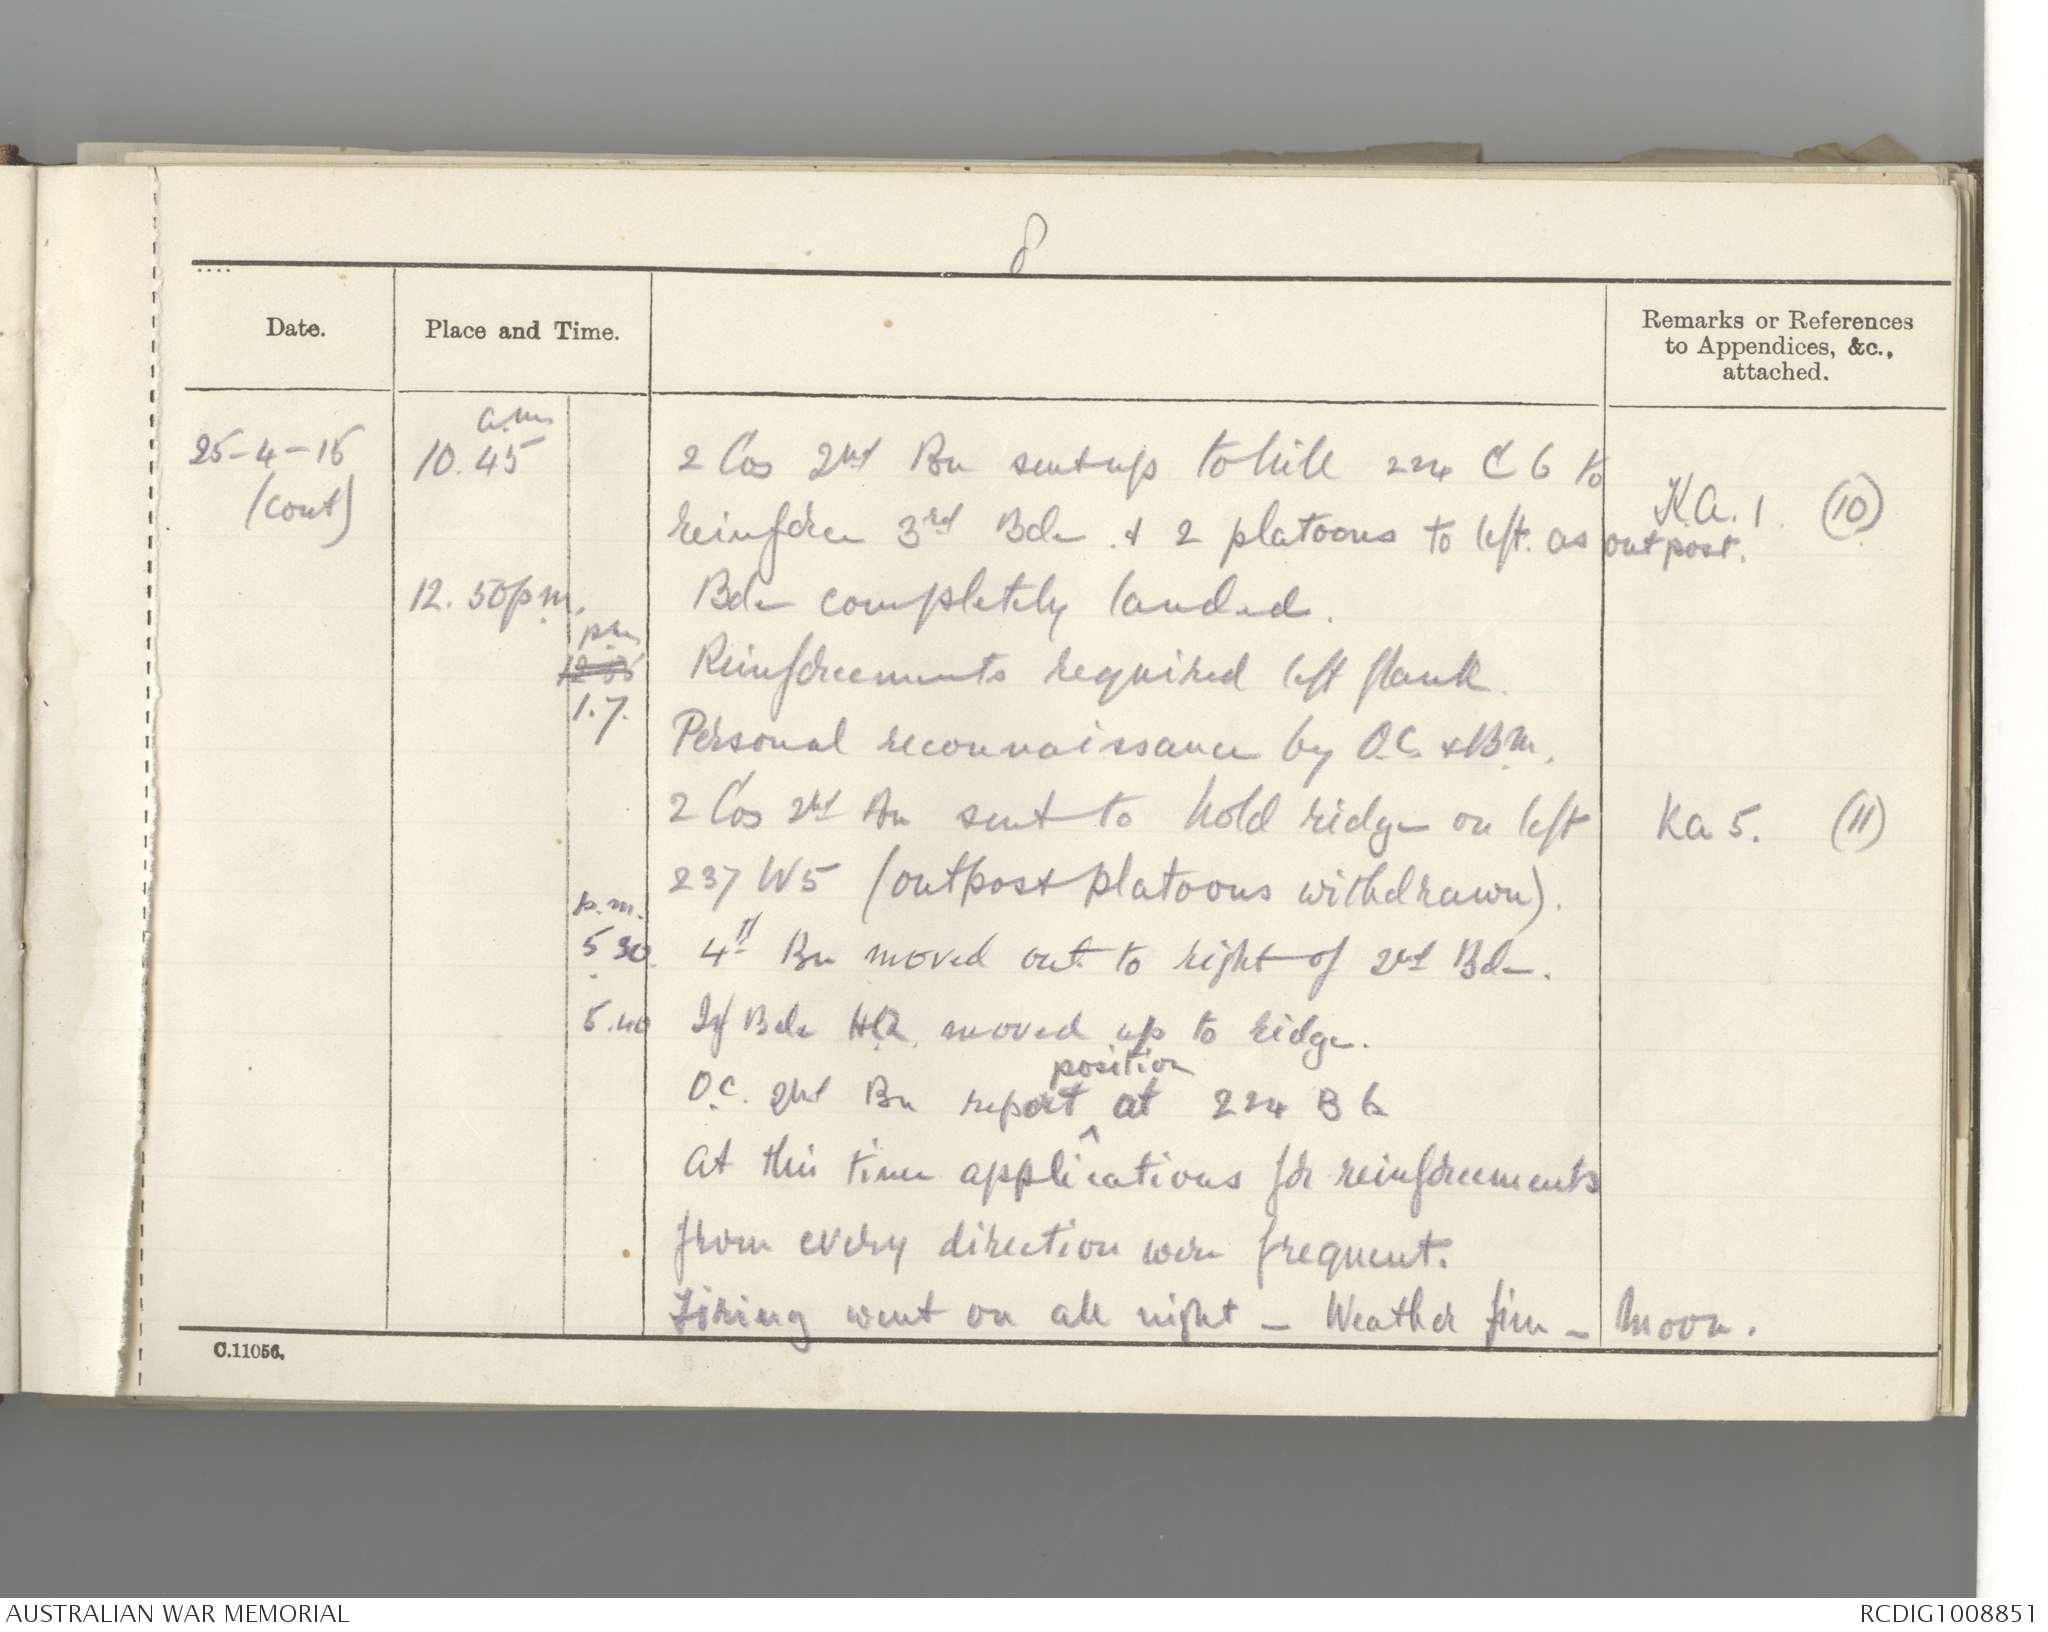 8
Date.
Place and Time.
Remarks or References
to Appendices, &c.,
attached.
25-4-15
(cont)
a.m.
10.45
2 Cos 2nd Bn sent up to hill 224 C 6 to
reinforce 3rd Bde. & 2 platoons to left. as outpost.
K.A. 1. (10)
12.50 p.m.
Bde completely landed.
p.m.
1.7.
Reinforcements required left flank.
Personal reconnaissance by O.C. & B.M.
2 Cos 2nd Bn sent to hold ridge on left
KA 5. (11)
237 W5 (outpost platoons withdrawn).
p.m.
5.30
4th Bn moved out to right of 2nd Bde.
5.40
Bde HQ. moved up to ridge.
position
O.C. 2nd Bn report at 224 B 6
At this time applications for reinforcements
from every direction were frequent.
Firing went on all night - Weather fine - Moon.
C.11056.
AUSTRALIAN WAR MEMORIAL
RCDIG1008851